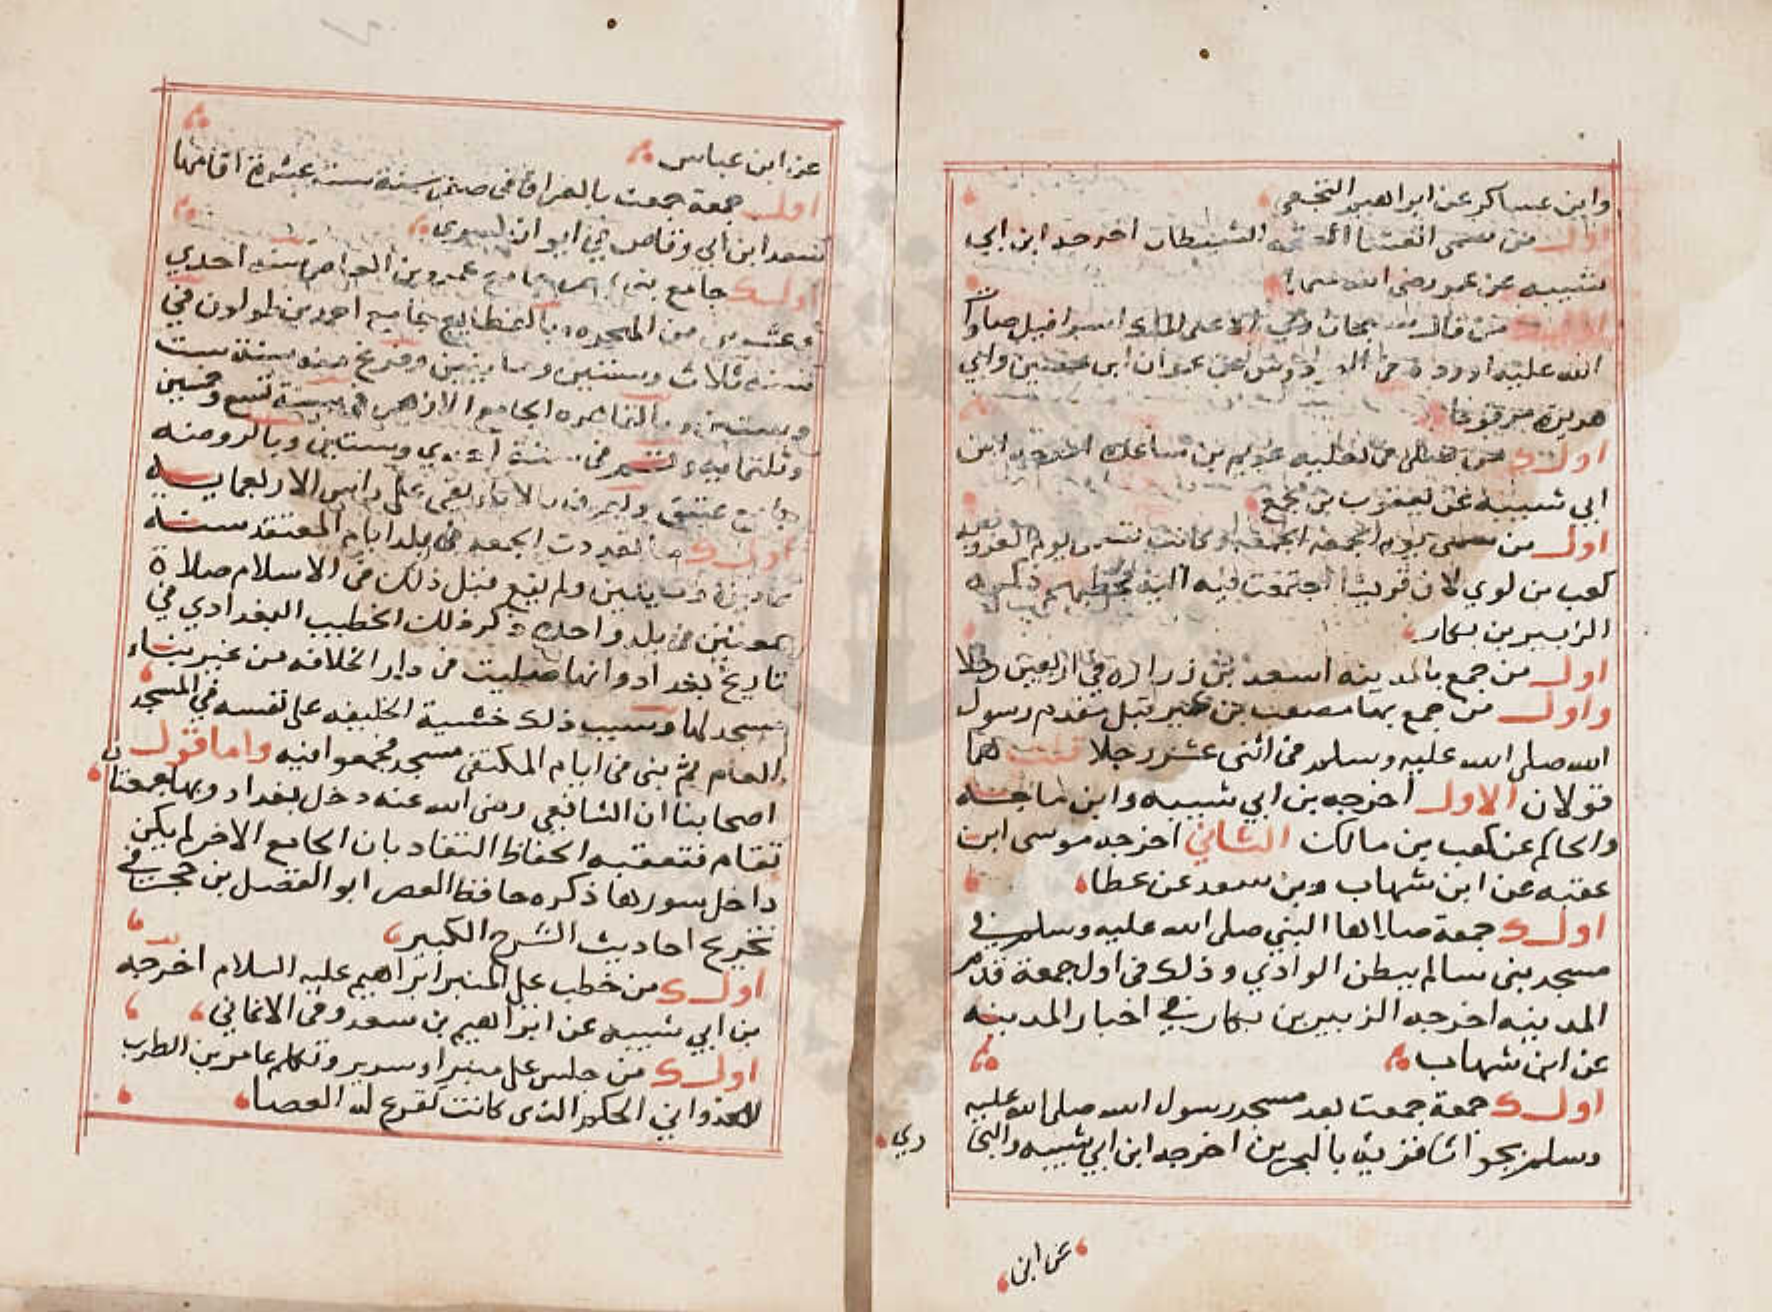 وابن عساكر عن ابراهيم النخعي
اول من سمى العشا العتمه الشيطان اخرجه ابن ابي
شيبه عن عمر رضي الله عنهما
من قال سبحان ربي الاعلى اسرافيل صلوات
الله عليه عن عمران ابن حصين وابي
هريرة مرفوعا
اول من عويم بن ساعده اخرجه ابن
ابي شيبه عن يعقوب بن مجمع
اول من سمى يوم الجمعه الجمعه وكانت تسمى يوم العروبه
كعب بن لوي لان قريشا اجتمعت فيه اليه
الزبير بن بكار
اول من جمع بالمدينه اسعد بن زراره في اربعين رجلا
واول من جمع بها مصعب بن عمير قبل مقدم رسول
الله صلى الله عليه وسلم في اثنى عشر رجلا قلت هما
قولان الاول اخرجه بن ابي شيبه وابن ماجه
والحاكم عن كعب بن مالك الثاني اخرجه موسى ابن
عقبه عن ابن شهاب وبن سعد عن عطا
اول جمعة صلاها النبي صلى الله عليه وسلم في
مسجد بني سالم ببطن الوادي وذلك في اول جمعة قدم
المدينه اخرجه الزبير بن بكار في اخبار المدينه
عن ابن شهاب
اول جمعة جمعت بعد مسجد رسول الله صلى الله عليه
وسلم بجواثا قرية بالبحرين اخرجه ابن ابي شيبه والبخا
ري
عن ابن
عن ابن عباس
اول جمعة جمعت بالعراق في صفر سنة ستة عشرة اقامها
سعد ابن ابي وقاص في ايوان كسرى
اول جامع بني جامع عمرو بن العاص سنه احدي
وعشرين من الهجره وبالقطايع جامع احمد بن طولون في
سنه ثلاث وستين ومايتين وفرغ منه سنة ست
وستين وبالقاهره الجامع الازهر في سنة تسع وخمسين
وثلثمايه في سنة احدي وستين وبالروضه
جامع على راس الاربعمايه
اول ما تعددت الجمعه في بلد ايام المعتضد سنه
ثمانين ومايتين ولم يقع قبل ذلك في الاسلام صلاة
جمعتين في بلد واحده ذكر ذلك الخطيب البغدادي في
تاريخ بغداد وانها صليت في دار الخلافه من غير بناء
مسجد لها وسبب ذلك خشية الخليفه على نفسه في المسجد
العام ثم بنى في ايام المكتفى مسجد فجمعوا فيه واما قول
اصحابنا ان الشافعي رضى الله عنه دخل بغداد وبها جمعتان
تقام فتعقبه الحفاظ النقاد بان الجامع الاخر لم يكن
داخل سورها ذكره حافظ العصر ابو الفضل بن حجر في
تخريج احاديث الشرح الكبير
اول من خطب على المنبر ابراهيم عليه السلام اخرجه
بن ابي شيبه عن ابراهيم بن سعد وفى الاغاني
اول من جلس على منبر او سرير وتكلم عامر بن الظرب
العدواني الحكم الذى كانت تقرع له العصا